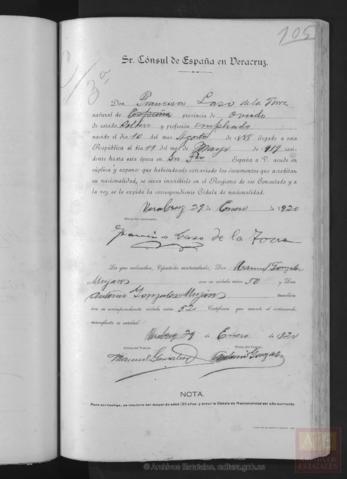 105
Sr. Cónsul de España en Veracruz.
Don Francisco Laso de la Torre
natural de provincia de Oviedo
de estado Soltero y profesión empleado
nacido el día 12 del mes Agosto de 188 llegado a esta
República el día 09 del mes de Marzo de 1917 resi-
dente hasta esta época en España a V. acude en
súplica y expone: que habiéndose extraviado los documentos que acreditan
su nacionalidad, se sirva inscribirlo en el Registro de su Consulado y a
la vez se le expida la correspondiente Cédula de nacionalidad.
Veracruz 29 de Enero de 1920
Francisco Laso de la Torre
Los que suscriben, Españoles matriculados, Don Manuel Gonzalez
Mujan con su cédula núm. 50 y Don
Antonio Gonzalez Mujan también
con su correspondiente cédula núm. 52 Certifican que cuanto el recurrente
manifiesta es verdad.
Veracruz 29 de Enero de 1920
Manuel Gonzalez Antonio Gonzalez
NOTA.
© Archivos Estatales, cultura.gob.es
ARCHIVOS ESTATALES